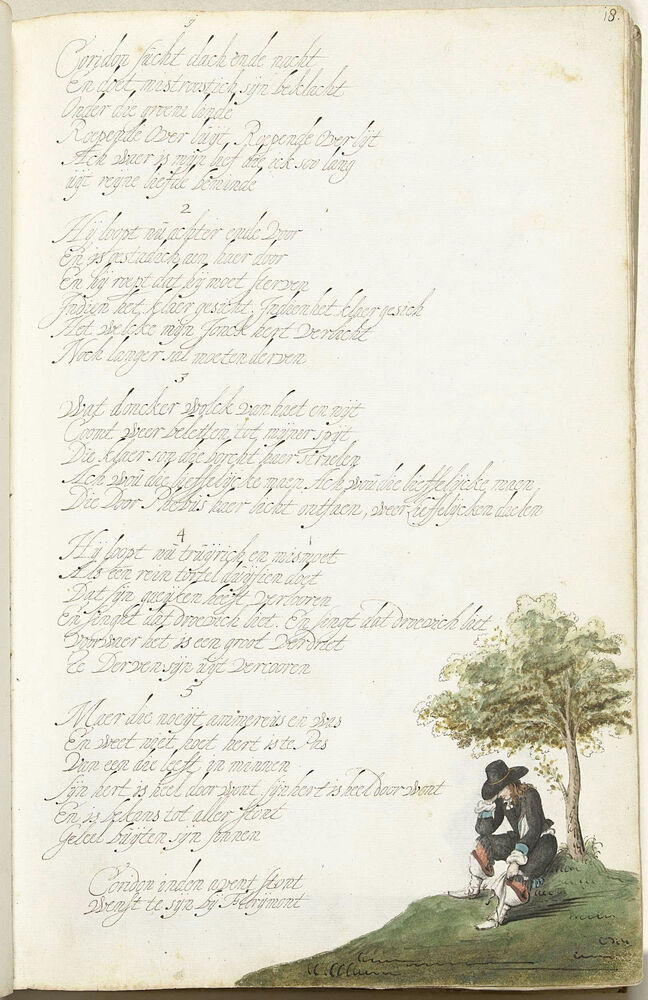 18.
1
Coridon sucht dach ende nacht
En doet mistroostich sijn beklacht
Onder die groene linde
Roepende Over luijt, Roepende Over lijt
Ach waer is mijn lief die ick soo lang
uijt reijne liefde beminde
2
Hij loopt nu achter ende voor
En is gestadich aen haer door
En hij roept dat hij moet sterven
Indien het klaer gesicht, Indien het klaer gesich
Het welcke mijn Jonck hert verlicht
Noch langer sal moeten derven
3
Wat doncker wolck van haet en nijt
Coomt weer beletten tot mijner spijt
Die klaer son die borcht haer straelen
Ach wou die lieffelijcke maen, Ach wou die lieffelijcke maen,
Die Door Phebus haer licht ontfaen, weer Lieffelijcken daelen
4
Hij loopt nu truijrich en mismoet
Als een rein tortel duijfien doet
Dat sijn gaeijken heeft verlooren
En singht dat droevich liet, En singt dat droevich liet
Voorwaer het is een groot verdriet
te Derven sijn uijt vercooren
5
Maer die noeijt aminereus en was
En weet niet hoet hert is te Pas
Van een die leeft in minnen
Sijn hert is heel door wont sijn hert is heel Door wont
En is bekans tot aller stont
Geleel buijten sijn sinnen
Coridon inden avent stont
Wenst te sijn bij